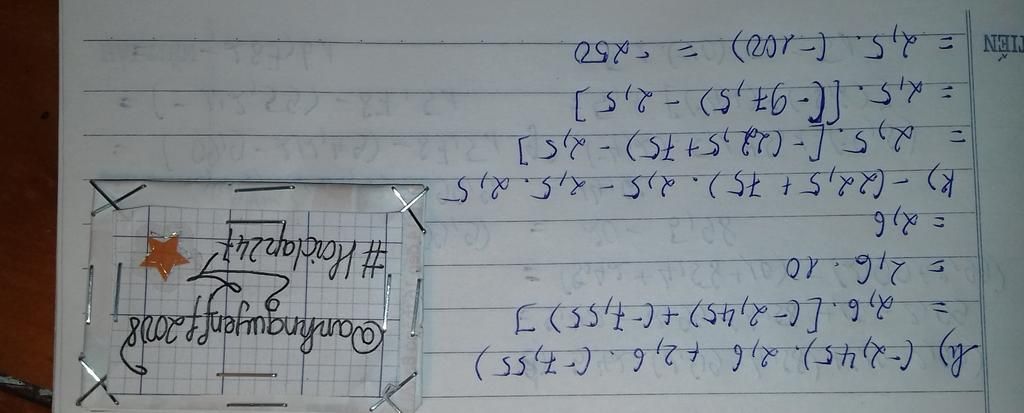 h) (-2,45). 2,6 + 2,6. (-7,55)
= 2,6. [(-2,45) + (-7,55)]
= 2,6. 10
= 2,6
k) -(22,5 + 75). 2,5 - 2,5. 2,5
= 2,5. [-(22,5 + 75) - 2,5]
= 2,5. [(-97,5) - 2,5]
= 2,5. (-100) = -250
@anhnguyenff2008
#Hoidap247